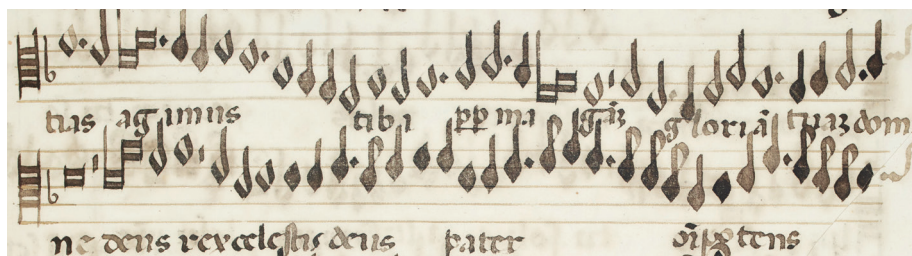 tias agimus tibi pp ma gãꝫ gloriã tuaꝫ dom
ne deus rex celestis deus pater oĩpotens